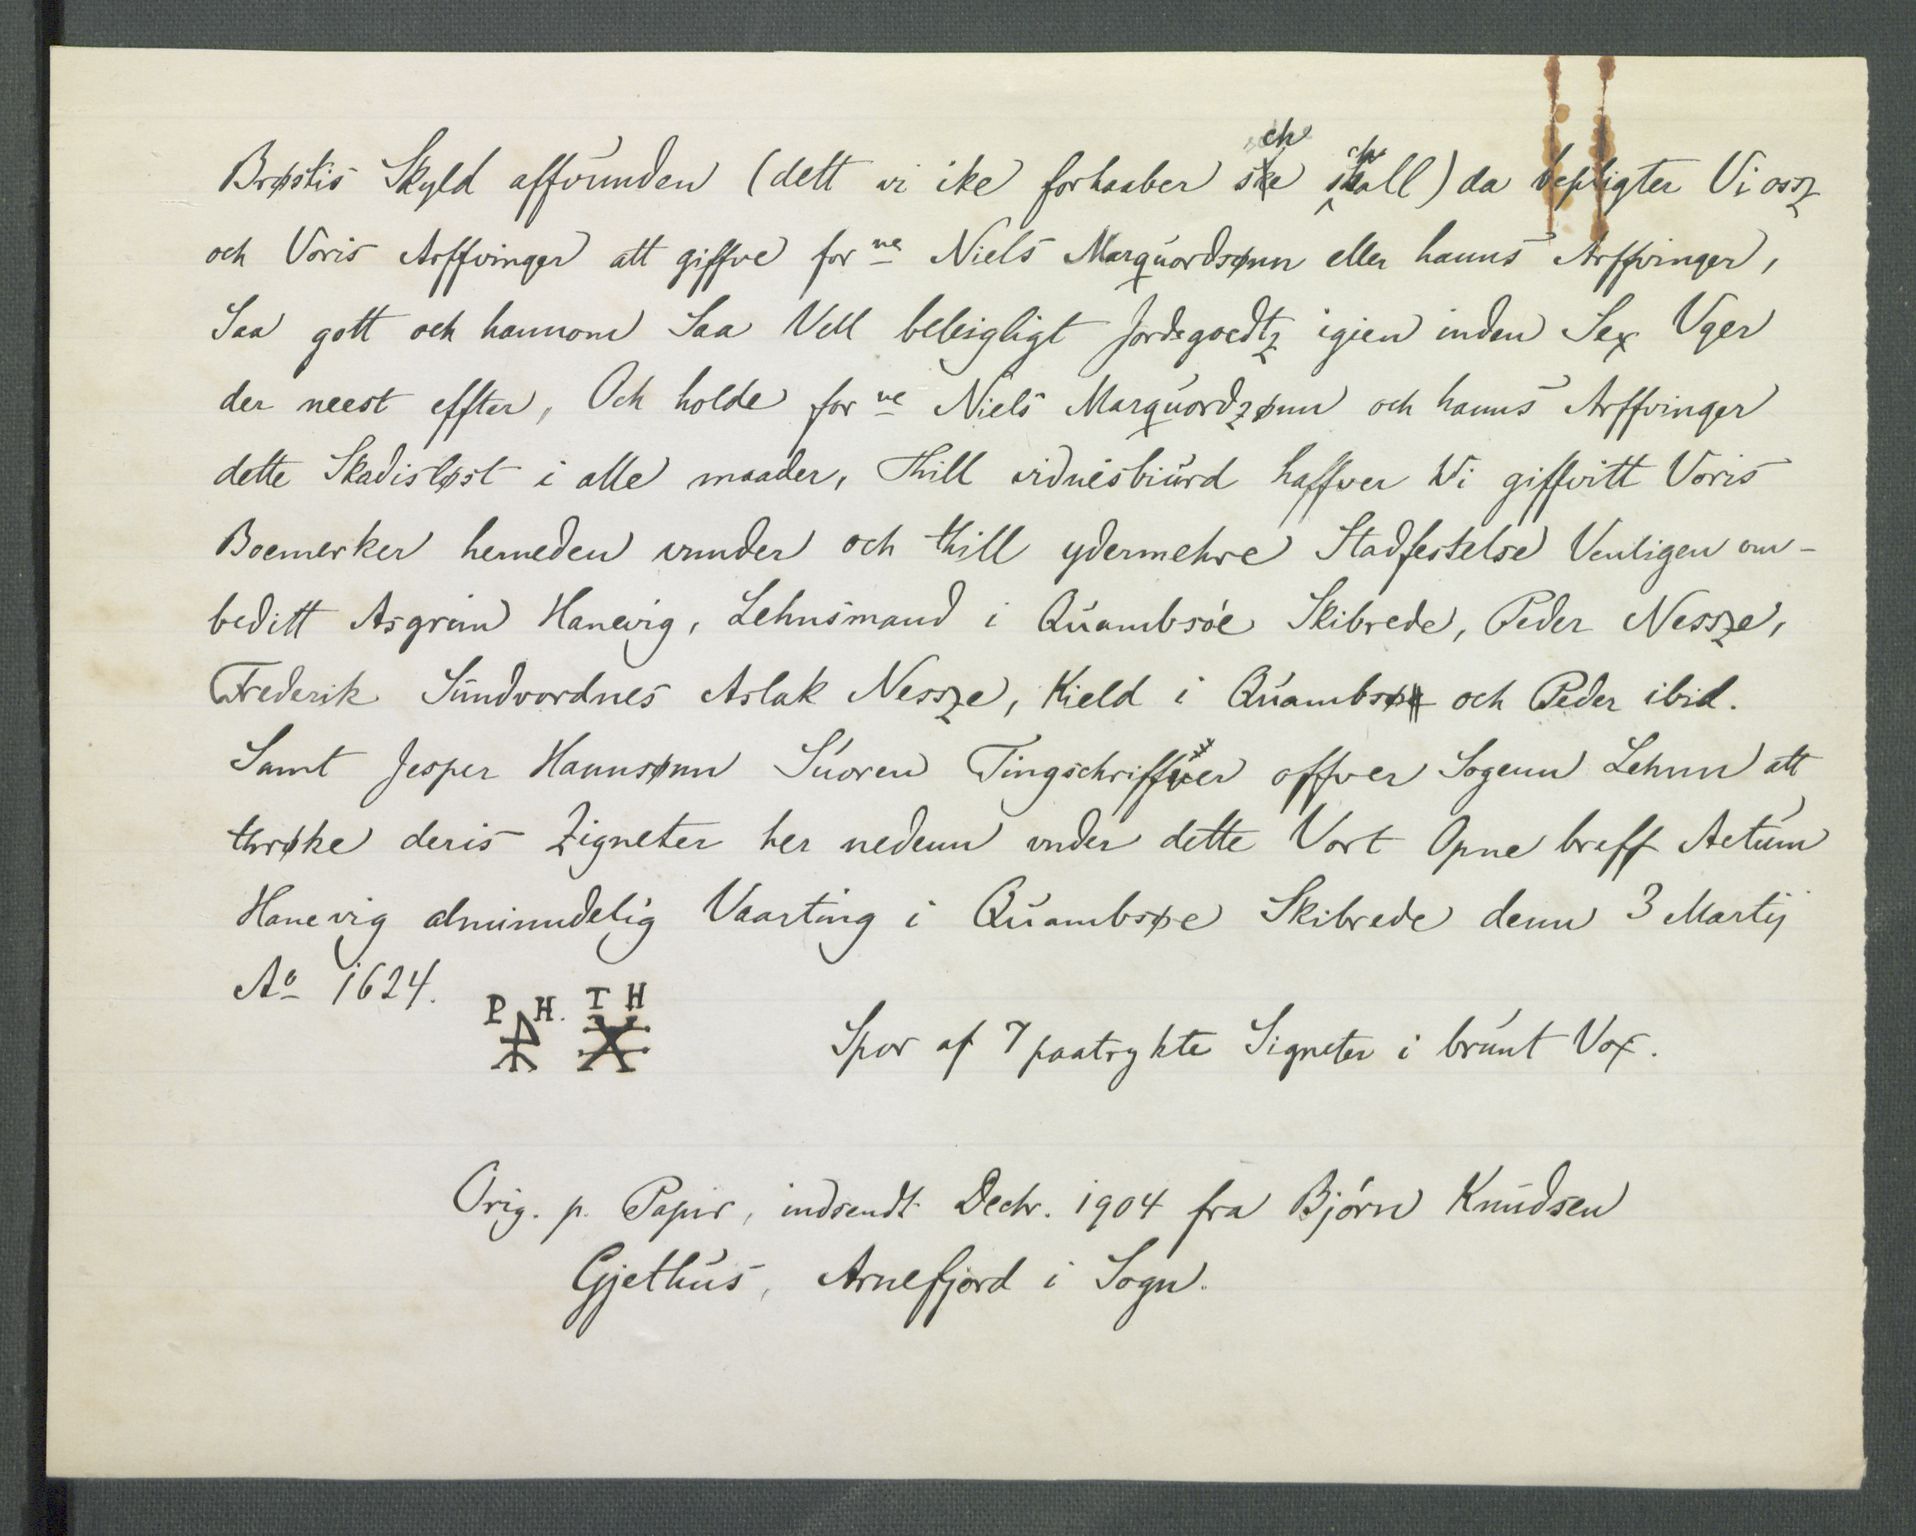 Brøstis Skyld affvunden (dett vi ike forhaaber sche schall) da bepligter Vi ossz
och Voris Arffvinger att giffve for ne Niels Marquordsønn eller hanns Arffvinger,
Saa gott och hannom Saa Vell beleigligt Jordegoedtz igien inden Sex Vger
der neest effter, Och holde for ne Niels Marquordzønn och hanns Arffvinger
dette Skadisløst i alle maader, Thill vidnesbiurd haffver Wi giffvitt Voris
Boemerker herneden vnnder och thill ydermehre Stadfestelse Venligen om-
beditt Asgrim Hanevig, Lehnsmand i Quambsøe Skibrede, Peder Nessze,
Frederik Sundvordnes Aslak Nessze, Kield i Quambsø och Peder ibid.
Samt Jesper Hannsønn Suoren Tingschriffuer offver Sogenn Lehnn att
thrøke deris Zigneter her nedenn vnder dette Vort Opne breff Actum
Hanevig almimndelig Vaarting i Quambsøe Skibrede denn 3 Martij
Aº 1624.
P H. T H
Spor af 7 paatrykte Signeter i brunt Vox.
Orig. p. Papir, indsendt Decbr. 1904 fra Bjørn Knudsen
Gjethus, Arnefjord i Sogn.